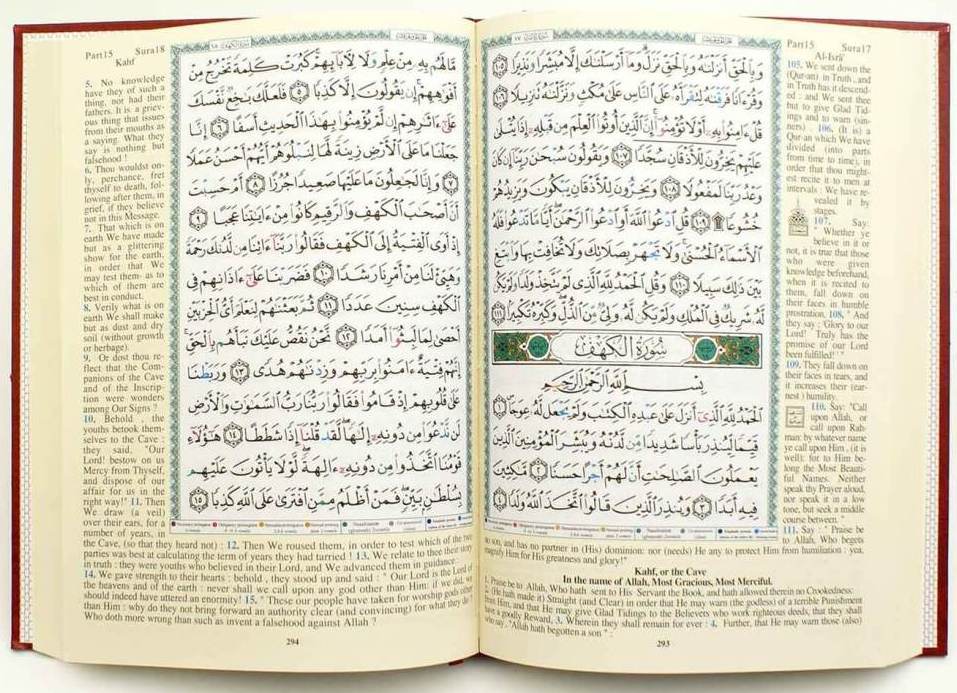 وَبِالْحَقِّ أَنزَلْنَٰهُ وَبِالْحَقِّ نَزَلَ وَمَآ أَرْسَلْنَٰكَ إِلَّا مُبَشِّرًا وَنَذِيرًا ١٠٥
وَقُرْءَانًا فَرَقْنَٰهُ لِتَقْرَأَهُۥ عَلَى النَّاسِ عَلَىٰ مُكْثٍ وَنَزَّلْنَٰهُ تَنزِيلًا ١٠٦
قُلْ ءَامِنُوا۟ بِهِۦٓ أَوْ لَا تُؤْمِنُوٓا۟ إِنَّ الَّذِينَ أُوتُوا۟ الْعِلْمَ مِن قَبْلِهِۦٓ إِذَا يُتْلَىٰ
عَلَيْهِمْ يَخِرُّونَ لِلْأَذْقَانِ سُجَّدًا ١٠٧ وَيَقُولُونَ سُبْحَٰنَ رَبِّنَآ إِن كَانَ
وَعْدُ رَبِّنَا لَمَفْعُولًا ١٠٨ وَيَخِرُّونَ لِلْأَذْقَانِ يَبْكُونَ وَيَزِيدُهُمْ
خُشُوعًا ۩ ١٠٩ قُلِ ادْعُوا۟ اللَّهَ أَوِ ادْعُوا۟ الرَّحْمَٰنَ أَيًّا مَّا تَدْعُوا۟ فَلَهُ
الْأَسْمَآءُ الْحُسْنَىٰ وَلَا تَجْهَرْ بِصَلَاتِكَ وَلَا تُخَافِتْ بِهَا وَابْتَغِ
بَيْنَ ذَٰلِكَ سَبِيلًا ١١٠ وَقُلِ الْحَمْدُ لِلَّهِ الَّذِى لَمْ يَتَّخِذْ وَلَدًا وَلَمْ يَكُن
لَّهُۥ شَرِيكٌ فِى الْمُلْكِ وَلَمْ يَكُن لَّهُۥ وَلِىٌّ مِّنَ الذُّلِّ وَكَبِّرْهُ تَكْبِيرًۢا ١١١
سُورَةُ الْكَهْفِ
بِسْمِ اللَّهِ الرَّحْمَٰنِ الرَّحِيمِ
الْحَمْدُ لِلَّهِ الَّذِىٓ أَنزَلَ عَلَىٰ عَبْدِهِ الْكِتَٰبَ وَلَمْ يَجْعَل لَّهُۥ عِوَجًا ١
قَيِّمًا لِّيُنذِرَ بَأْسًا شَدِيدًا مِّن لَّدُنْهُ وَيُبَشِّرَ الْمُؤْمِنِينَ الَّذِينَ
يَعْمَلُونَ الصَّٰلِحَٰتِ أَنَّ لَهُمْ أَجْرًا حَسَنًا ٢ مَّٰكِثِينَ
فِيهِ أَبَدًا ٣ وَيُنذِرَ الَّذِينَ قَالُوا۟ اتَّخَذَ اللَّهُ وَلَدًا ٤
Part15 Sura17
Al-Isrâ'
105. We sent down the
(Qur-an) in Truth, and
in Truth has it descend-
ed : and We sent thee
but to give Glad Tid-
ings and to warn (sin-
ners). 106. (It is) a
Qur-an which We have
divided (into parts
from time to time), in
order that thou might-
est recite it to men at
intervals : We have re-
vealed it by
stages.
107. Say:
" Whether ye
believe in it or
not, it is true that those
who were given
knowledge beforehand,
when it is recited to
them, fall down on
their faces in humble
prostration, 108. " And
they say : 'Glory to our
Lord! Truly has the
promise of our Lord
been fulfilled!' "
109. They fall down on
their faces in tears, and
it increases their (ear-
nest) humility.
110. Say: "Call
upon Allah, or
call upon Rah-
man: by whatever name
ye call upon Him, (it is
well): for to Him be-
long the Most Beauti-
ful Names. Neither
speak thy Prayer aloud,
nor speak it in a low
tone, but seek a middle
course between."
111. Say : " Praise be
to Allah, Who begets
no son, and has no partner in (His) dominion: nor (needs) He any to protect Him from humiliation : yea,
magnify Him for His greatness and glory!"
Kahf, or the Cave
In the name of Allah, Most Gracious, Most Merciful.
1. Praise be to Allah, Who hath sent to His Servant the Book, and hath allowed therein no Crookedness:
2. (He hath made it) Straight (and Clear) in order that He may warn (the godless) of a terrible Punishment
from Him, and that He may give Glad Tidings to the Believers who work righteous deeds, that they shall
have a goodly Reward, 3. Wherein they shall remain for ever : 4. Further, that He may warn those (also)
who say, "Allah hath begotten a son" :
293
مَّا لَهُم بِهِۦ مِنْ عِلْمٍ وَلَا لِـَٔابَآئِهِمْ كَبُرَتْ كَلِمَةً تَخْرُجُ مِنْ
أَفْوَٰهِهِمْ إِن يَقُولُونَ إِلَّا كَذِبًا ٥ فَلَعَلَّكَ بَٰخِعٌ نَّفْسَكَ
عَلَىٰٓ ءَاثَٰرِهِمْ إِن لَّمْ يُؤْمِنُوا۟ بِهَٰذَا الْحَدِيثِ أَسَفًا ٦ إِنَّا
جَعَلْنَا مَا عَلَى الْأَرْضِ زِينَةً لَّهَا لِنَبْلُوَهُمْ أَيُّهُمْ أَحْسَنُ عَمَلًا
٧ وَإِنَّا لَجَٰعِلُونَ مَا عَلَيْهَا صَعِيدًا جُرُزًا ٨ أَمْ حَسِبْتَ
أَنَّ أَصْحَٰبَ الْكَهْفِ وَالرَّقِيمِ كَانُوا۟ مِنْ ءَايَٰتِنَا عَجَبًا ٩
إِذْ أَوَى الْفِتْيَةُ إِلَى الْكَهْفِ فَقَالُوا۟ رَبَّنَآ ءَاتِنَا مِن لَّدُنكَ رَحْمَةً
وَهَيِّئْ لَنَا مِنْ أَمْرِنَا رَشَدًا ١٠ فَضَرَبْنَا عَلَىٰٓ ءَاذَانِهِمْ فِى
الْكَهْفِ سِنِينَ عَدَدًا ١١ ثُمَّ بَعَثْنَٰهُمْ لِنَعْلَمَ أَىُّ الْحِزْبَيْنِ
أَحْصَىٰ لِمَا لَبِثُوٓا۟ أَمَدًا ١٢ نَّحْنُ نَقُصُّ عَلَيْكَ نَبَأَهُم بِالْحَقِّ
إِنَّهُمْ فِتْيَةٌ ءَامَنُوا۟ بِرَبِّهِمْ وَزِدْنَٰهُمْ هُدًى ١٣ وَرَبَطْنَا
عَلَىٰ قُلُوبِهِمْ إِذْ قَامُوا۟ فَقَالُوا۟ رَبُّنَا رَبُّ السَّمَٰوَٰتِ وَالْأَرْضِ
لَن نَّدْعُوَا۟ مِن دُونِهِۦٓ إِلَٰهًا لَّقَدْ قُلْنَآ إِذًا شَطَطًا ١٤ هَٰٓؤُلَآءِ
قَوْمُنَا اتَّخَذُوا۟ مِن دُونِهِۦٓ ءَالِهَةً لَّوْلَا يَأْتُونَ عَلَيْهِم
بِسُلْطَٰنٍۭ بَيِّنٍ فَمَنْ أَظْلَمُ مِمَّنِ افْتَرَىٰ عَلَى اللَّهِ كَذِبًا ١٥
Part15 Sura18
Kahf
5. No knowledge
have they of such a
thing, nor had their
fathers. It is a griev-
ous thing that issues
from their mouths as
a saying. What they
say is nothing but
falsehood !
6. Thou wouldst on-
ly, perchance, fret
thyself to death, fol-
lowing after them, in
grief, if they believe
not in this Message.
7. That which is on
earth We have made
but as a glittering
show for the earth,
in order that We
may test them- as to
which of them are
best in conduct.
8. Verily what is on
earth We shall make
but as dust and dry
soil (without growth
or herbage).
9. Or dost thou re-
flect that the Com-
panions of the Cave
and of the Inscrip-
tion were wonders
among Our Signs ?
10. Behold, the
youths betook them-
selves to the Cave :
they said, "Our
Lord! bestow on us
Mercy from Thyself,
and dispose of our
affair for us in the
right way!" 11. Then
We draw (a veil)
over their ears, for a
number of years, in
the Cave, (so that they heard not) : 12. Then We roused them, in order to test which of the two
parties was best at calculating the term of years they had tarried ! 13. We relate to thee their story
in truth : they were youths who believed in their Lord, and We advanced them in guidance:
14. We gave strength to their hearts : behold, they stood up and said : " Our Lord is the Lord of
the heavens and of the earth : never shall we call upon any god other than Him: if we did, we
should indeed have uttered an enormity! 15. " These our people have taken for worship gods other
than Him : why do they not bring forward an authority clear (and convincing) for what they do ?
Who doth more wrong than such as invent a falsehood against Allah ?
294